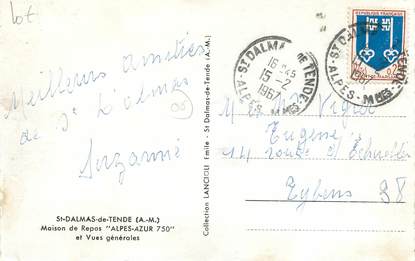 lot
Meilleures amitiés
de St Dalmas
Suzanne
St-DALMAS-de-TENDE (A.-M.)
Maison de Repos "ALPES-AZUR 750"
et Vues générales
Collection LANCIOLI Emile - St Dalmas-de-Tende (A.-M.)
ST DALMAS DE TENDE
16 H 45
15-2
1967
ALPES-MMES
REPUBLIQUE FRANCAISE
ST DALMAS DE TENDE
ALPES-MMES
Eugène
14 route d'
Eybens 38